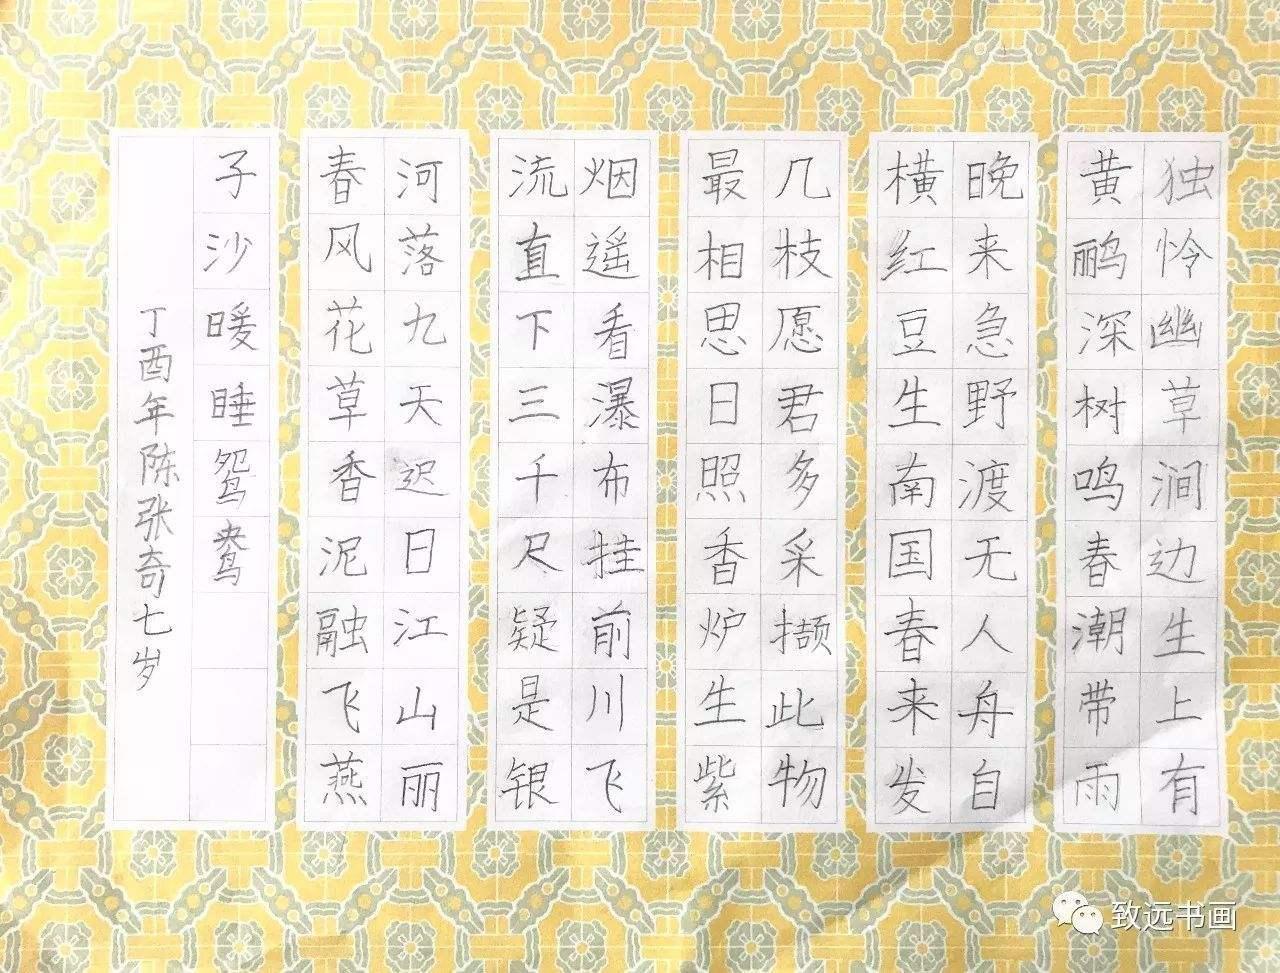 独怜幽草涧边生上有
黄鹂深树鸣春潮带雨
晚来急野渡无人舟自
横红豆生南国春来发
几枝愿君多采撷此物
最相思日照香炉生紫
烟遥看瀑布挂前川飞
流直下三千尺疑是银
河落九天迟日江山丽
春风花草香泥融飞燕
子沙暖睡鸳鸯
丁酉年陈张奇七岁
致远书画